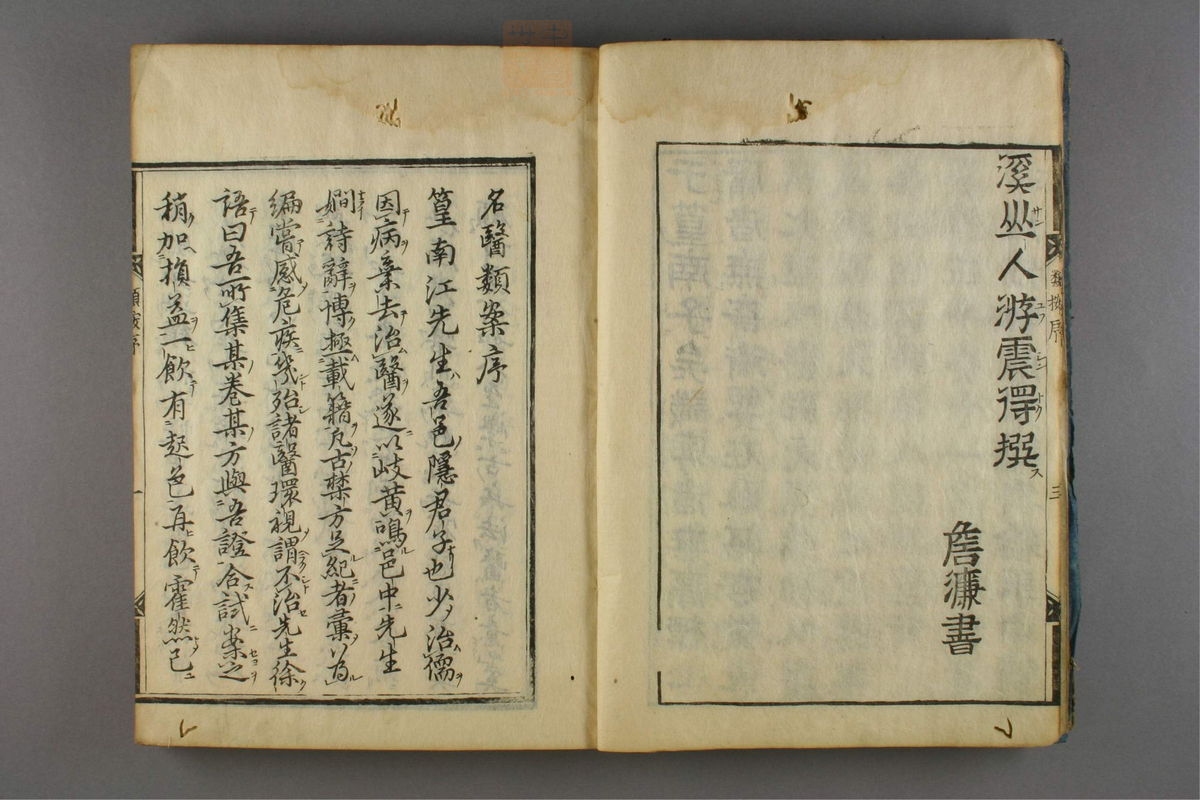 溪丛一人游震得撰
詹濂書
名醫類案序
篁南江先生吾邑隱君子也少治儒
因病棄去治醫遂以岐黄鳴邑中先生
嫺詩辭博極載籍凡古禁方足紀者彙以為
編嘗感危疾幾殆諸醫環視謂不治先生徐
語曰吾所集某卷某方與吾證合試案之
稍加損益一飲有起色再飲霍然已